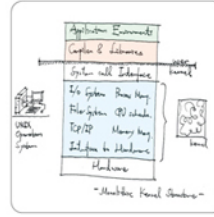 Application Environments
Compilers & Libraries
System call Interface
UNIX
kernel
I/O System Process Manag.
File System CPU schedu.
TCP/IP Memory Manag.
Interface to Hardware
Hardware
UNIX
Operation
System
kernel
"Monolithic Kernel Structure"